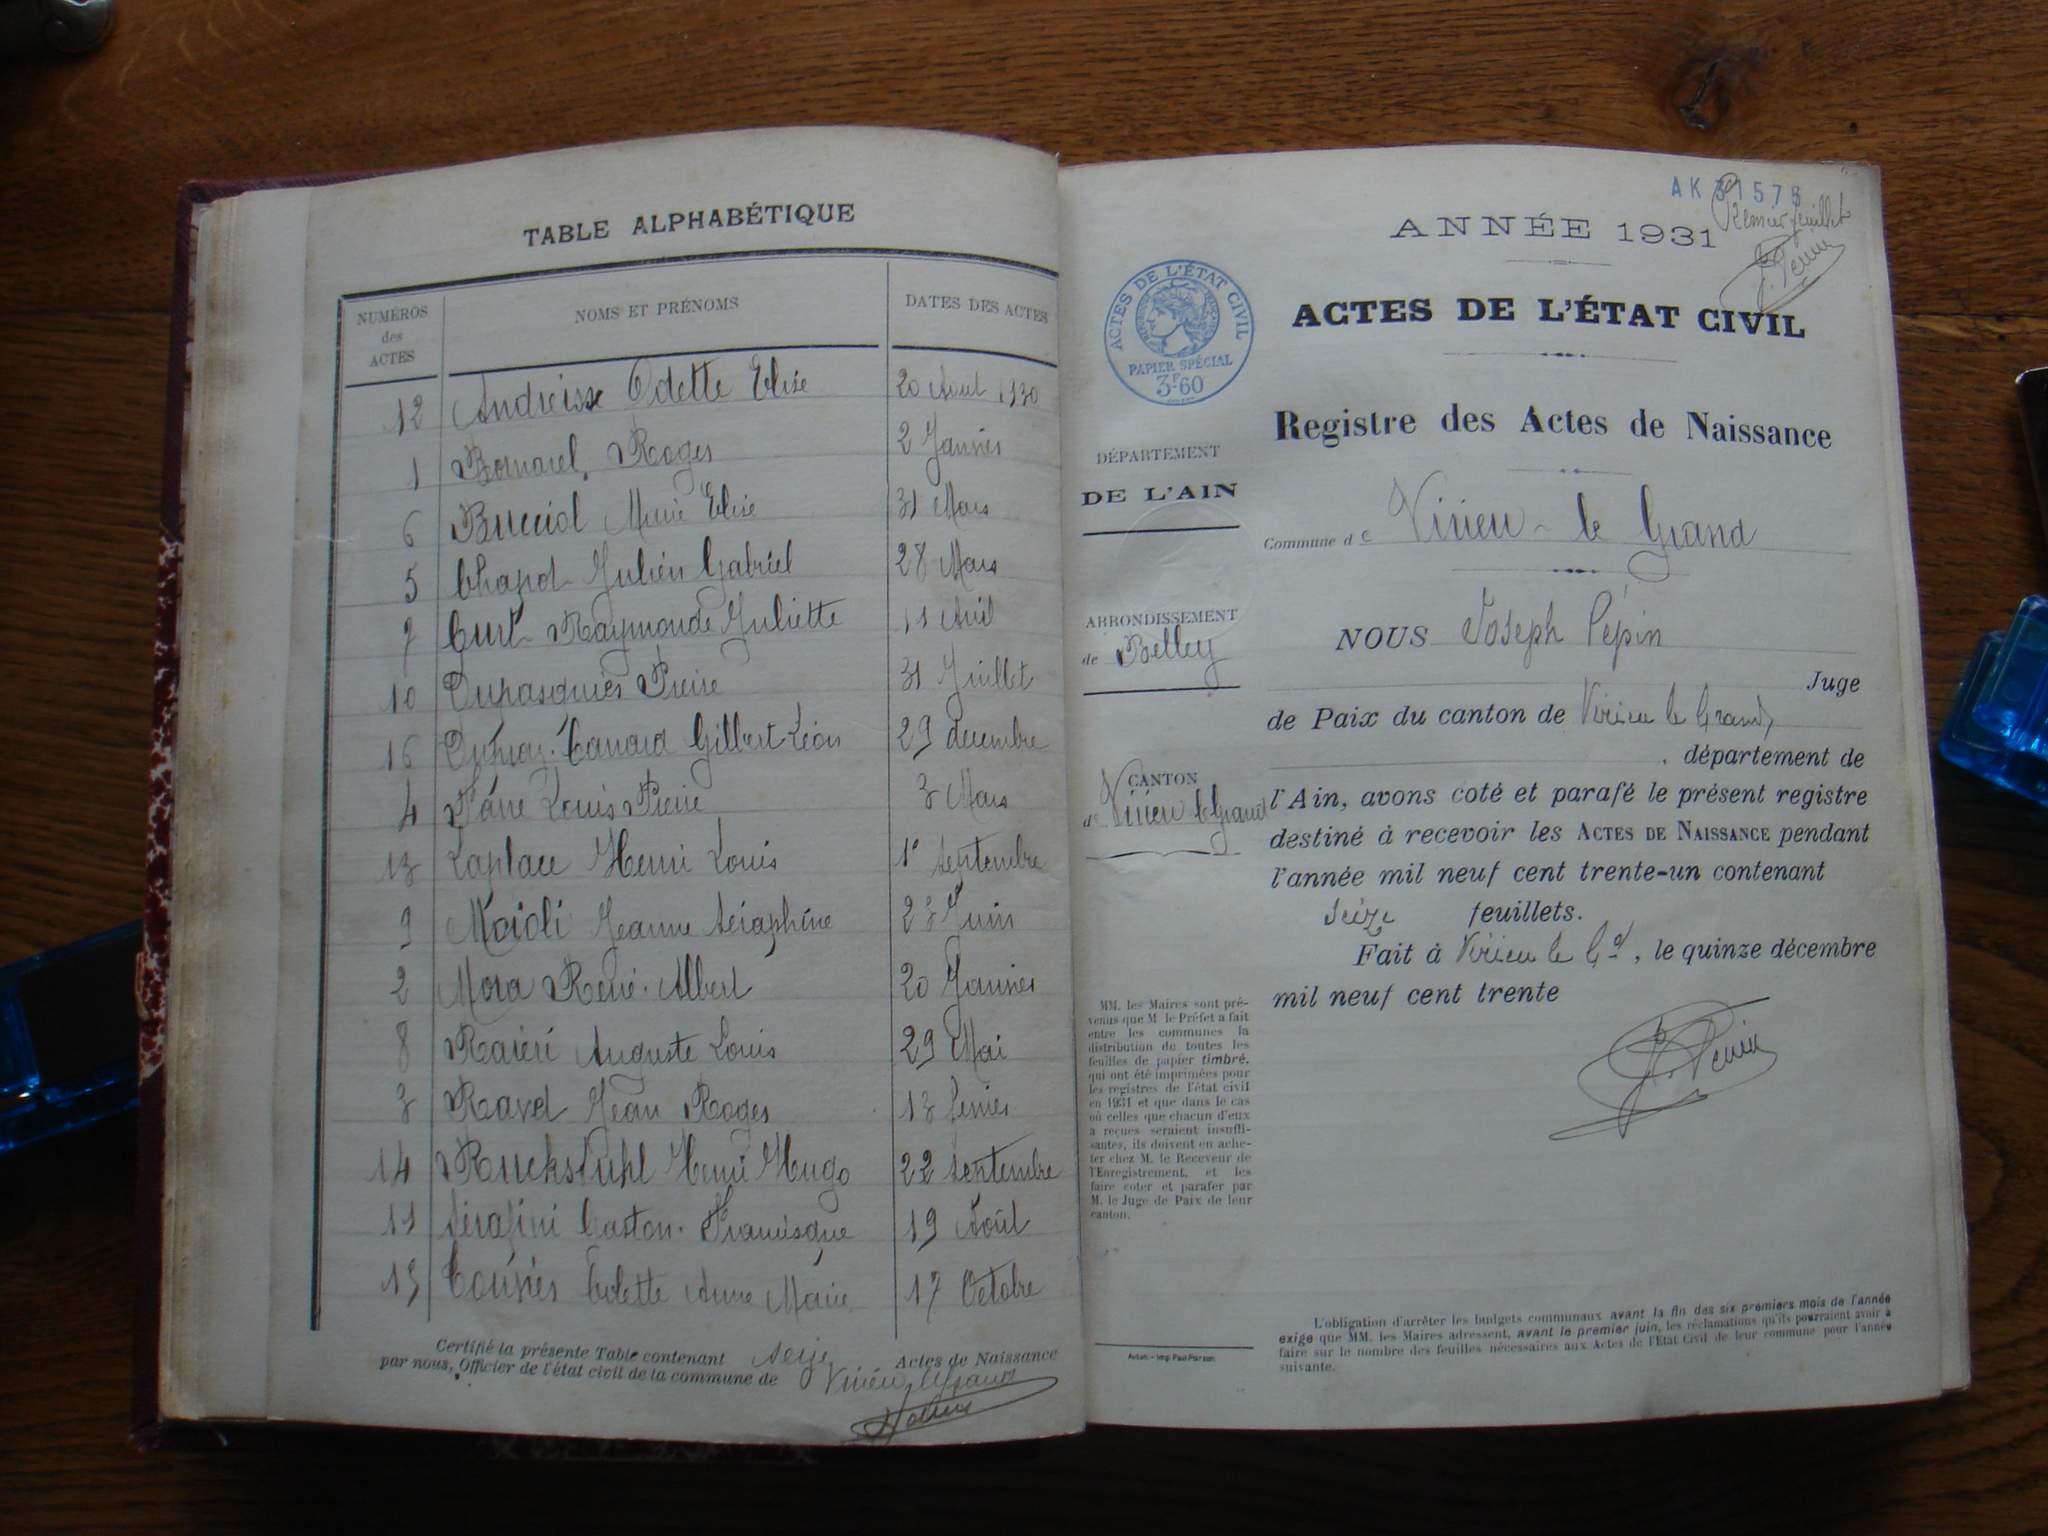 TABLE ALPHABÉTIQUE
NUMÉROS des ACTES
NOMS ET PRÉNOMS
DATES DES ACTES
12 Odette Elise 20 Août 1930
1 Roger 2 Janvier
6 Bucciol Marie Elise 31 Mars
5 Chapot Julien Gabriel 28 Mars
7 Curt Raymonde Juliette 11 Avril
10 Dupasquier Pierre 31 Juillet
16 Gilbert Léon 29 decembre
4 Louis Pierre 3 Mars
13 Laplace Henri Louis 1er Septembre
9 Maioli Jeanne Séraphine 23 Juin
2 Mora René Albert 20 Janvier
8 Auguste Louis 29 Mai
3 Ravel Jean Roger 13 fevrier
14 Ruckstuhl Henri Hugo 22 Septembre
11 Sérafini Gaston Francisque 19 Août
15 Colette Anne Marie 17 Octobre
Certifié la présente Table contenant seize Actes de Naissance
par nous, Officier de l'état civil de la commune de Virieu le Grand
AK 31575
Premier feuillet
J. Pépin
ANNÉE 1931
ACTES DE L'ÉTAT CIVIL
PAPIER SPÉCIAL
3F60
ACTES DE L'ÉTAT CIVIL
Registre des Actes de Naissance
DÉPARTEMENT
DE L'AIN
Commune de Virieu-le Grand
ARRONDISSEMENT
de Belley
CANTON
de Virieu le Grand
NOUS Joseph Pépin
Juge
de Paix du canton de Virieu le Grand,
, département de
l'Ain, avons coté et parafé le présent registre
destiné à recevoir les ACTES DE NAISSANCE pendant
l'année mil neuf cent trente-un contenant
seize feuillets.
Fait à Virieu le Gd, le quinze décembre
mil neuf cent trente
J. Pépin
MM. les Maires sont pré-
venus que M le Préfet a fait
entre les communes la
distribution de toutes les
feuilles de papier timbré,
qui ont été imprimées pour
les registres de l'état civil
en 1931 et que dans le cas
où celles que chacun d'eux
a reçues seraient insuffi-
santes, ils doivent en ache-
ter chez M. le Receveur de
l'Enregistrement, et les
faire coter et parafer par
M. le Juge de Paix de leur
canton.
L'obligation d'arrêter les budgets communaux avant la fin des six premiers mois de l'année
exige que MM. les Maires adressent, avant le premier juin, les réclamations qu'ils pourraient avoir à
faire sur le nombre des feuilles nécessaires aux Actes de l'Etat Civil de leur commune pour l'année
suivante.